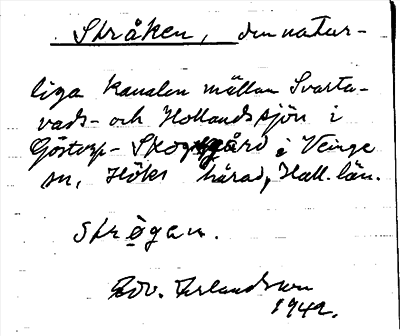 Stråken, den natur-
liga kanalen mällan Svarta-
vads- och Hollandssjön i
Göstorp- Skogsgård i Veinge
sn, Höks härad, Hall. län.
strøgan.
Edv. Erlandsson
1942.